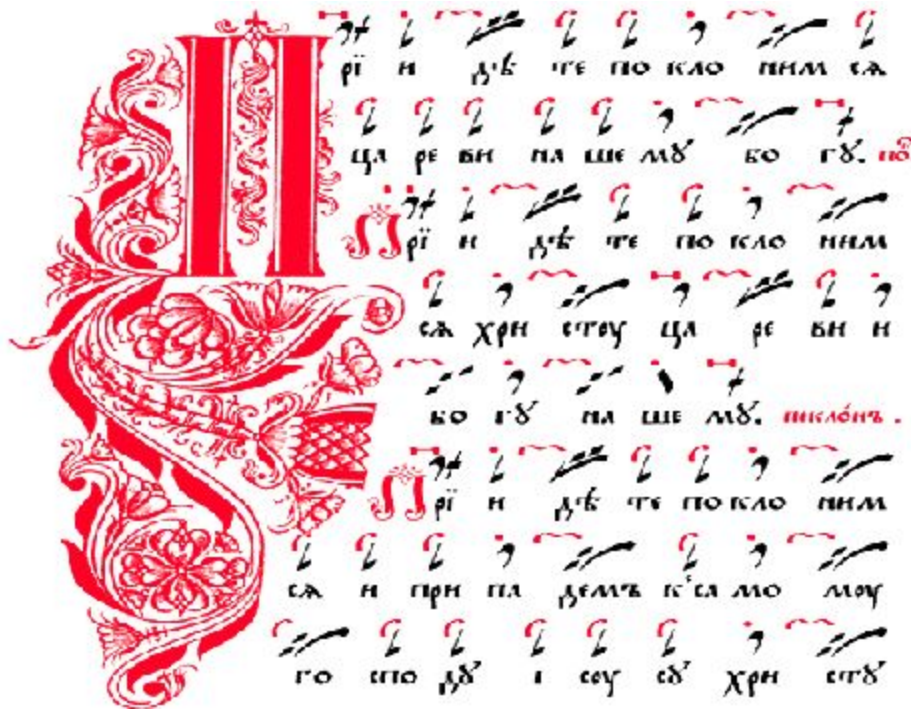 Прїи дѣ те по кло ним сѧ
ца ре ви на ше мꙋ бо гꙋ. по
Прїи дѣ те по кло ним
сѧ хри стоу ца ре ви и
бо гꙋ на ше мꙋ. поклóнъ.
Прїи дѣ те по кло ним
сѧ и при па демъ к са мо моу
го спо дꙋ і соу сꙋ хри стꙋ